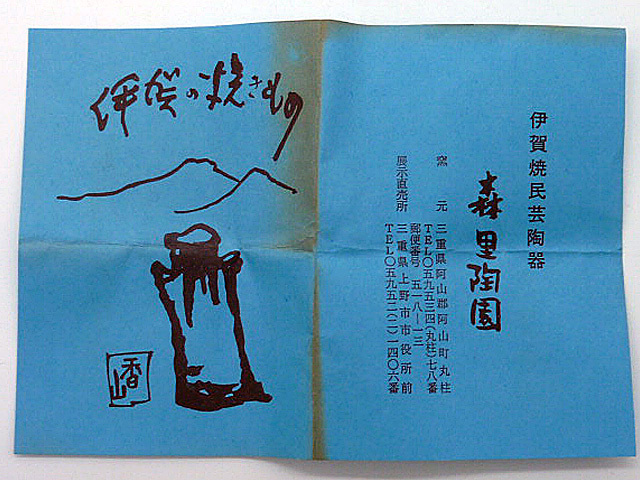 伊賀焼民芸陶器
森里陶園
窯元 三重県阿山郡阿山町丸柱
TEL〇五九五三四(丸柱)七八番
郵便番号 五一八―一三
展示直売所 三重県上野市市役所前
TEL〇五九五二(二)一四〇六番
伊賀の焼きもの
香山